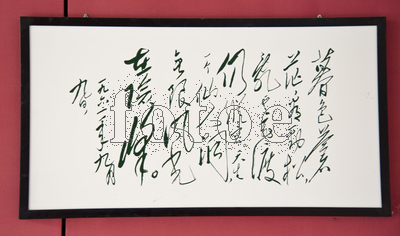 暮色苍
茫看劲松
乱云飞渡
仍从容天
生一个仙人洞
无限风光
在险峰。
一九六一年九月
九日
fotoe